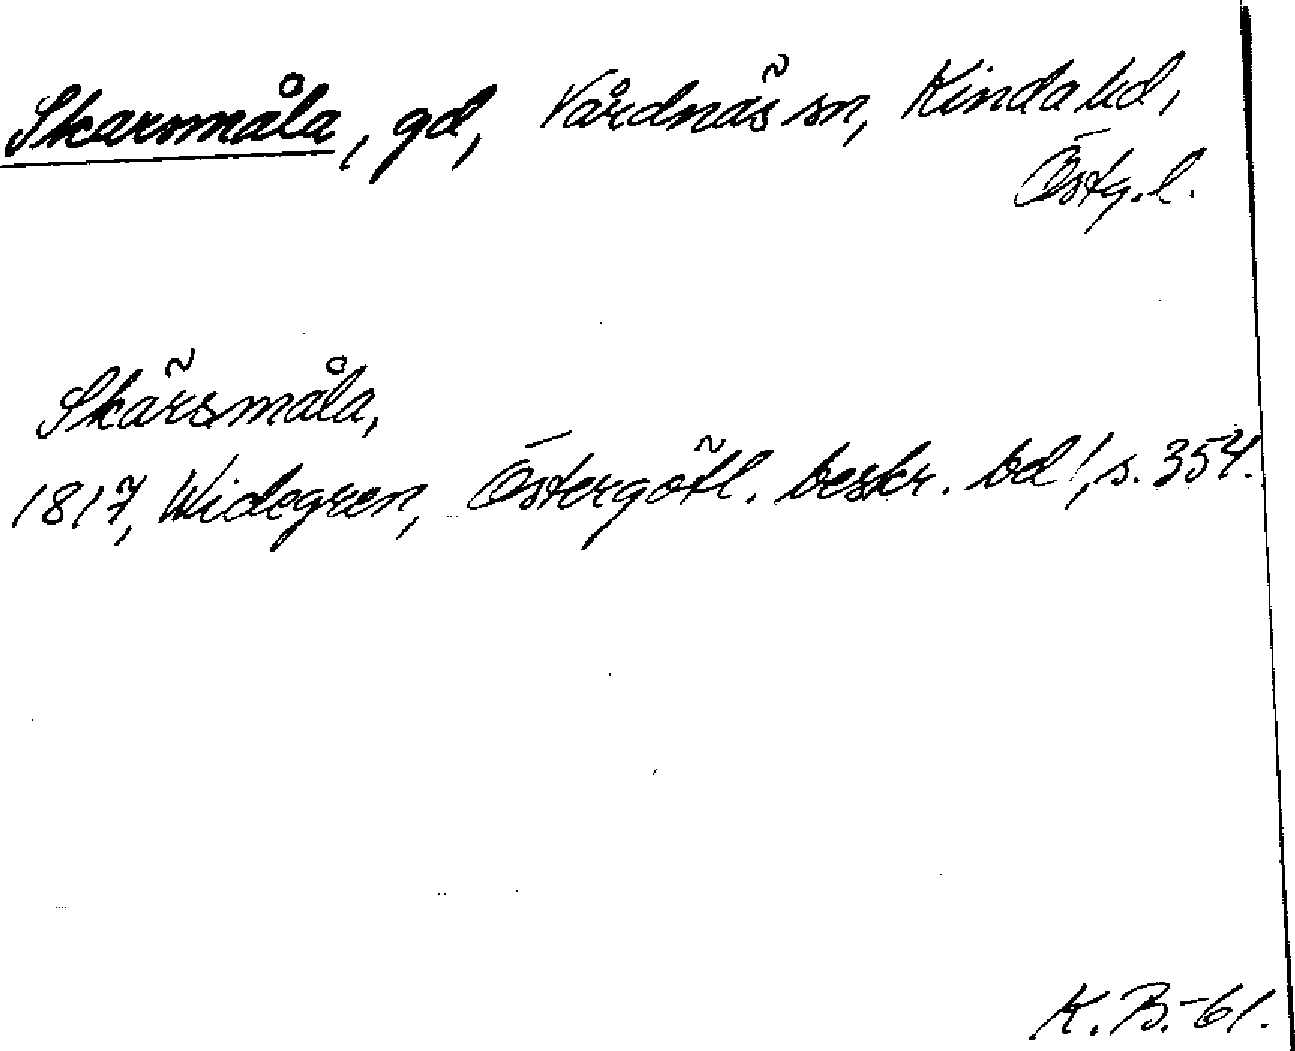 Skarnmåla, gd, Vårdnäs sn, Kinda hd,
Östg. l.
Skärsmåla,
1817, Widegren, Östergötl. beskr. bd 1, s. 354.
K. B. -61.